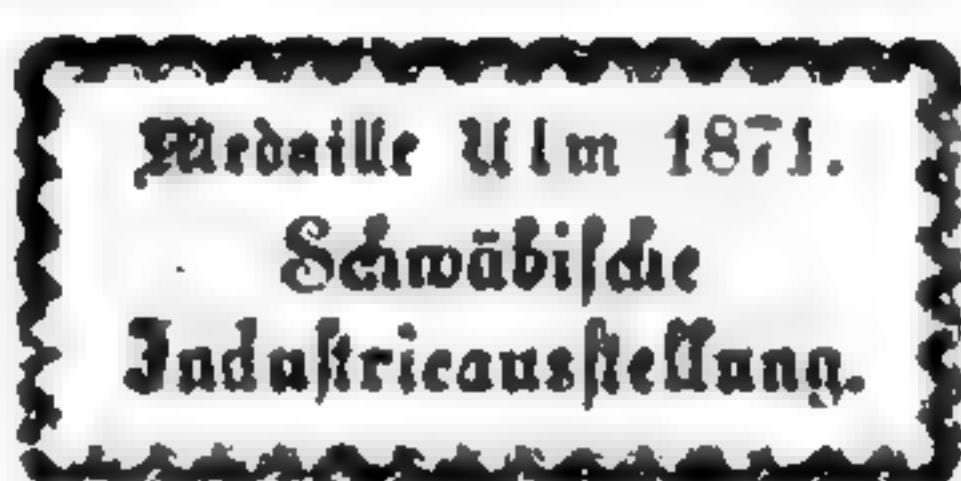 Medaille Ulm 1871.
Schwäbische
Industrieausstellung.